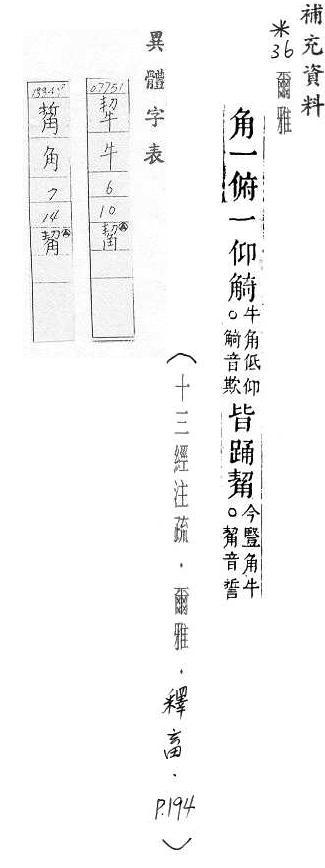 補充資料
※36 爾雅
角一俯一仰觭牛角低仰。觭音欺皆踊觢今豎角牛。觢音誓
(十三經注疏.爾雅.釋畜.P.194)
異體字表
07751
牛
6
10
觢
角
7
14
觢